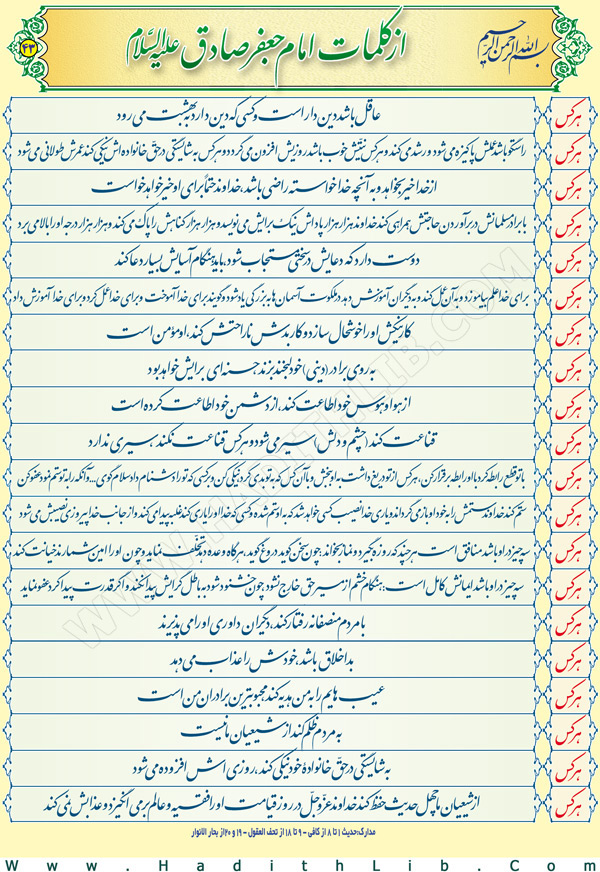 بسم الله الرحمن الرحیم
از کلمات امام جعفر صادق علیه السلام
۴۳
هرکس عاقل باشد دین دار است و کسی که دین دارد به بهشت می رود
هرکس راستگو باشد عملش پاکیزه می شود و رشد می کند و هرکس نیتش خوب باشد، روزیش افزون می گردد و هرکس به شایستگی در حق خانواده اش نیکی کند عمرش طولانی می شود
هرکس از خدا خیر بخواهد و به آنچه خدا خواسته راضی باشد، خداوند حتماً برای او خیر خواهد خواست
هرکس با برادر مسلمانش در برآوردن حاجتش همراهی کند خداوند هزار هزار پاداش نیک برایش می نویسد و هزار هزار گناهش را پاک می کند و هزار هزار درجه او را بالا می برد
هرکس دوست دارد که دعایش در سختی مستجاب شود، باید هنگام آسایش بسیار دعا کند
هرکس برای خدا علم بیاموزد و به آن عمل کند و به دیگران آموزش دهد در ملکوت آسمان ها به بزرگی یاد شود و گویند برای خدا آموخت و برای خدا عمل کرد و برای خدا آموزش داد
هرکس کار نیکش او را خوشحال سازد و کار بدش ناراحتش کند، او مؤمن است
هرکس به روی برادر (دینی) خود لبخند بزند حسنه ای برایش خواهد بود
هرکس از هوا و هوس خود اطاعت کند، از دشمن خود اطاعت کرده است
هرکس قناعت کند (چشم و دلش) سیر می شود و هرکس قناعت نکند، سیری ندارد
هرکس با تو قطع رابطه کرد با او رابطه برقرار کن، هرکس از تو دریغ داشت به او ببخش و با آن کس که به تو بدی کرد نیکی کن و بر کسی که تو را دشنام داد سلام گوی ... و آنکه را به تو ستم نمود عفو کن
هرکس ستم کند خداوند ستمش را به خود او باز می گرداند و یاری خدا نصیب کسی خواهد شد که به او ستم شده و کسی که خدا او را یاری کند غلبه پیدا می کند و از جانب خدا پیروزی نصیبش می شود
هرکس سه چیز در او باشد منافق است هر چند که روزه بگیرد و نماز بخواند: چون سخن گوید دروغ گوید، هرگاه وعده دهد تخلف نماید و چون او را امین شمارند خیانت کند
هرکس سه چیز در او باشد ایمانش کامل است: هنگام خشم از مسیر حق خارج نشود چون خشنود شود به باطل گرایش پیدا نکند و اگر قدرت پیدا کرد عفو نماید
هرکس با مردم منصفانه رفتار کند، دیگران داوری او را می پذیرند
هرکس بداخلاق باشد، خودش را عذاب می دهد
هرکس عیب هایم را به من هدیه کند محبوبترین برادران من است
هرکس به مردم ظلم کند از شیعیان ما نیست
هرکس به شایستگی در حق خانوادهٔ خود نیکی کند، روزی اش افزوده می شود
هرکس از شیعیان ما چهل حدیث حفظ کند خداوند عزّ و جلّ در روز قیامت او را فقیه و عالم بر می انگیزد و عذابش نمی کند
مدارک: حدیث ۱ تا ۸ از کافی - ۹ تا ۱۸ از تحف العقول - ۱۹ و ۲۰ از بحار الانوار
Www.HadithLib.Com
WWW.HADITHLIB.COM